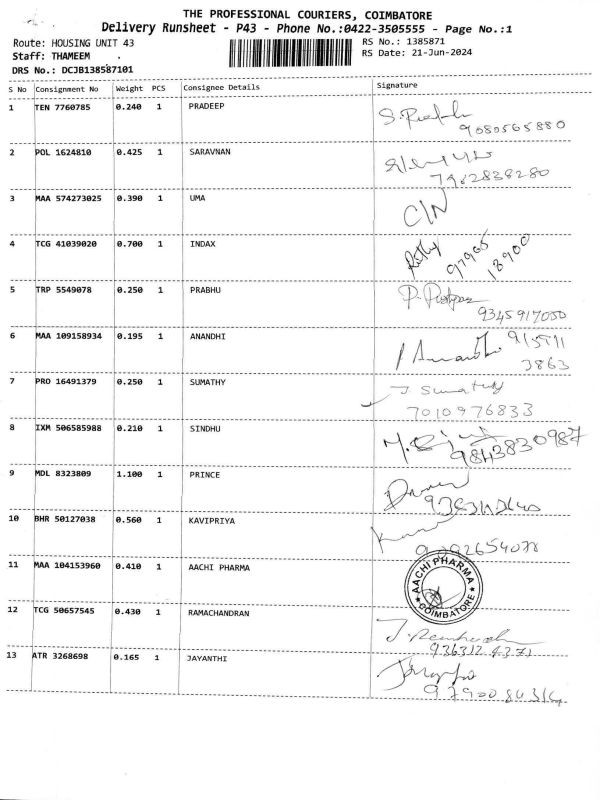 THE PROFESSIONAL COURIERS, COIMBATORE
Delivery Runsheet - P43 - Phone No.:0422-3505555 - Page No.:1
Route: HOUSING UNIT 43
RS No.: 1385871
Staff: THAMEEM
RS Date: 21-Jun-2024
DRS No.: DCJB138587101
S No Consignment No Weight PCS Consignee Details Signature
1 TEN 7760785 0.240 1 PRADEEP
9080565880
2 POL 1624810 0.425 1 SARAVNAN
7962838280
3 MAA 574273025 0.390 1 UMA C/N
4 TCG 41039020 0.700 1 INDAX
97965
18900
5 TRP 5549078 0.250 1 PRABHU
9345917050
6 MAA 109158934 0.195 1 ANANDHI
3863
7 PRO 16491379 0.250 1 SUMATHY J. Sumathy
7010976833
8 IXM 506585988 0.210 1 SINDHU
9843830987
9 MDL 8323809 1.100 1 PRINCE
10 BHR 50127038 0.560 1 KAVIPRIYA
11 MAA 104153960 0.410 1 AACHI PHARMA
AACHI PHARMA
COIMBATORE
12 TCG 50657545 0.430 1 RAMACHANDRAN
9363124371
13 ATR 3268698 0.165 1 JAYANTHI
9790084314